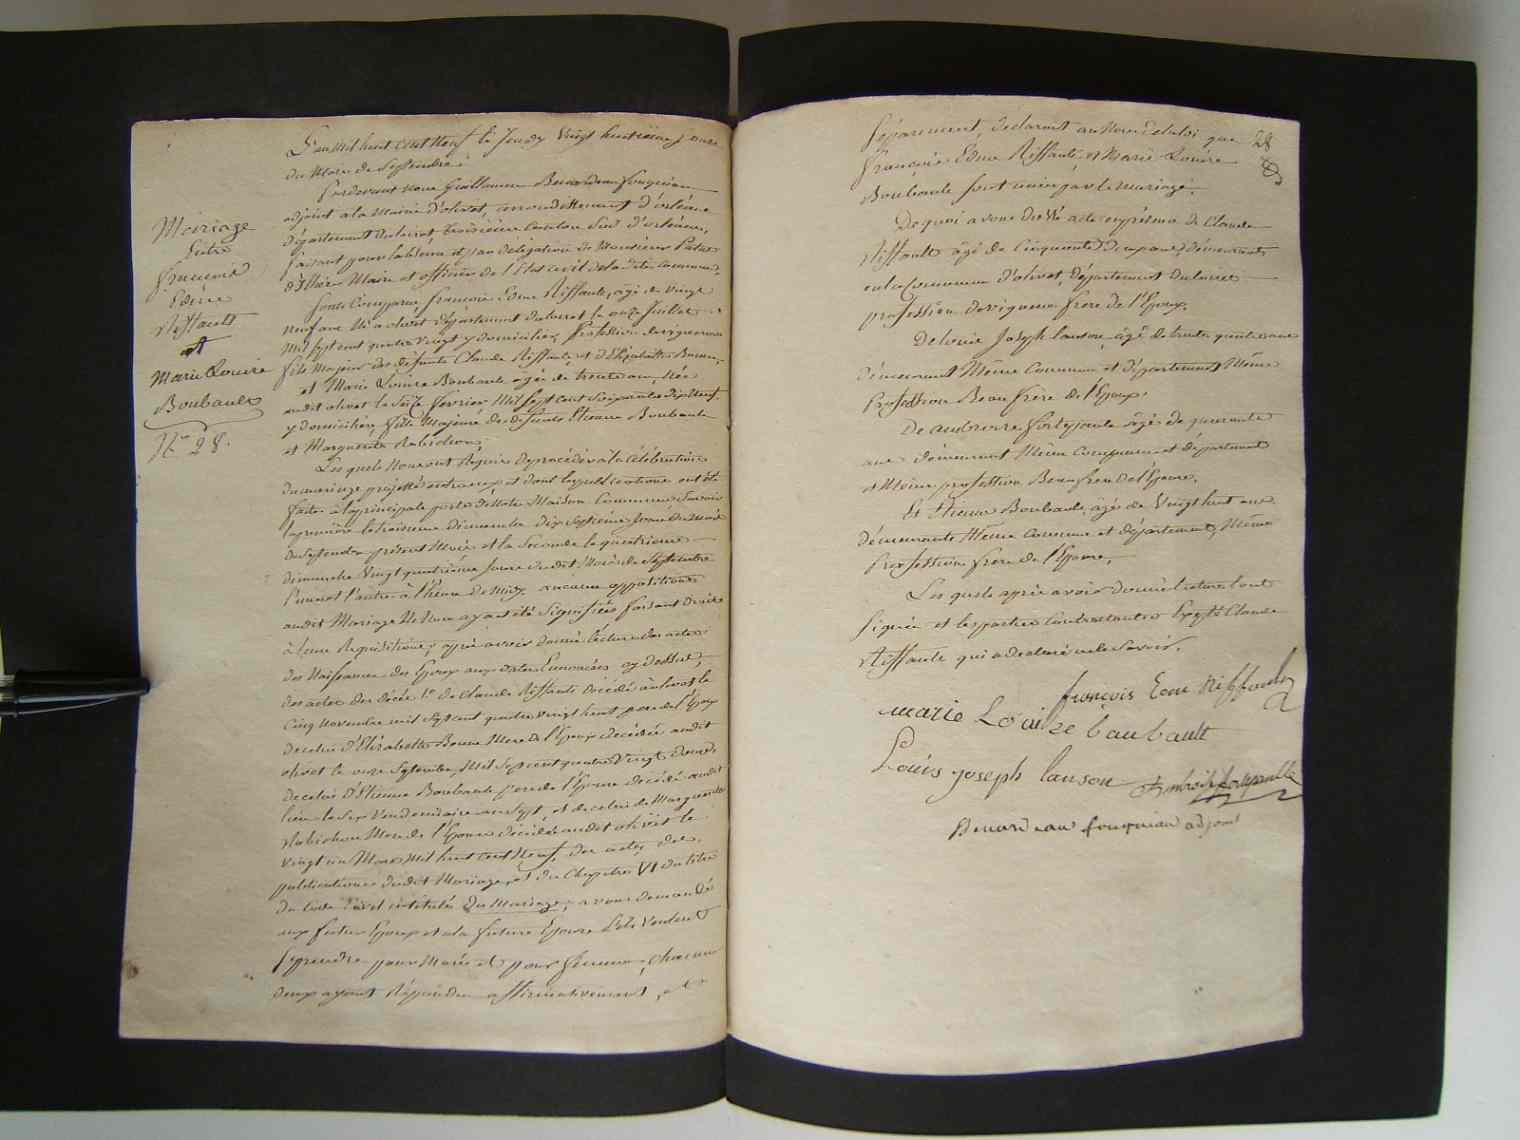 L'an Mil huit Cent Neuf le Jeudy Vingt huitieme jour
du Mois de Septembre
Pardevant nous Guillaume Benardeau fouqueau
adjoint a la Mairie d'olivet, arrondissement d'orléans
département du loiret troisieme Canton Sud d'orléans,
faisant pour l'absence et par délégation de Monsieur
Maire et officier de l'Etat civil de la ditte Commune,
Sont Comparus, françois Edme Riffault, âgé de vingt
neuf ans Né a olivet département du loiret le onze Juillet
Mil sept cent quatre vingt y domicilier, Profession de vigneron
fils Majeur des défunts Claude Riffault et d'Elizabeth Bonne,
et Marie Louise Boubault âgée de trente ans, Née
audit olivet le Seize février Mil sept cent Soixante dix Neuf
y domiciliée, fille Majeure des défunts Etienne Boubault
et Marguerite Rabichon,
Les quels Nous ont Requis de procéder a la Célébration
du mariage projetté entre eux et dont les publications ont été
faites a la principale porte de Notre Maison Commune Savoir
la première le troisieme dimanche Dix Septieme Jour du Mois
de Septembre présent Mois et la Seconde le quatrieme
dimanche Vingt quatrieme Jour dudit Mois de Septembre
l'une et l'autre à l'heure de Midy, aucune opposition
audit Mariage Ne Nous ayant été Signifiée faisant Droit
à leur Réquisition, après avoir donné lecture des actes
de Naissance des Epoux aux dates Enoncées cy dessus,
des actes de décès 1º de Claude Riffault décédé a olivet le
Cinq Novembre mil sept cent quatre vingt huit pere de l'Epoux
de celui d'Elizabeth Bonne Mere de l'Epoux décédée audit
olivet le onze Septembre Mil Sept cent quatre vingt douze
De celui d'Etienne Boubault pere de l'Epouse décédé audit
lieu le Six Vendemiaire an Sept, et de celui de Marguerite
Rabichon Mere de l'Epouse décédée audit olivet le
vingt un Mars Mil huit cent Neuf, des actes de
publications dudit Mariage, et du Chapitre VI du titre
du Code Civil intitulé Du Mariage, avons demandé
aux futur Epoux et a la future Epouse S'ils veulent
Se prendre pour Mari et pour femme, chacun
deux ayant Répondu affirmativement, et
Mariage
Entre
françois
Edme
Riffault
et
Marie Louise
Boubault
Nº 28.
Séparément, declarons au Nom de la loi que
françois Edme Riffault et Marie Louise
Boubault sont unis par le mariage.
28
De quoi avons dressé acte en présence de Claude
Riffault âgé de Cinquante deux ans, demeurant
en la Commune d'olivet, département du loiret
profession de vigneron frere de l'Epoux,
De Louis Joseph lanson, âgé de trente quatre ans
demeurant Même Commune et département Même
Profession Beau frere de l'Epoux,
De ambroise fortepaulle âgé de quarante
ans demeurant Même Commune et département
et Même profession Beau frere de l'Epouse,
Et Etienne Boubault, âgé de Vingt huit ans
demeurant Même Commune et département, Même
Profession frere de l'Epouse,
Les quels après avoir donné lecture l'ont
Signée et les parties Contractantes Excepté Claude
Riffault qui a declaré ne le Savoir.
françois Edme Riffault
marie Louize baubault
Louis joseph lanson
Ambroise fortepaulle
Benardeau fouqueau adjoint